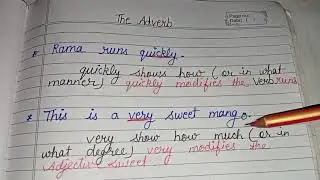 The Adverb
Rama runs quickly.
quickly shows how (or in what
manner) quickly modifies the Verb runs
This is a very sweet mango.
very show how much (or in
what degree) very modifies the
adjective sweet